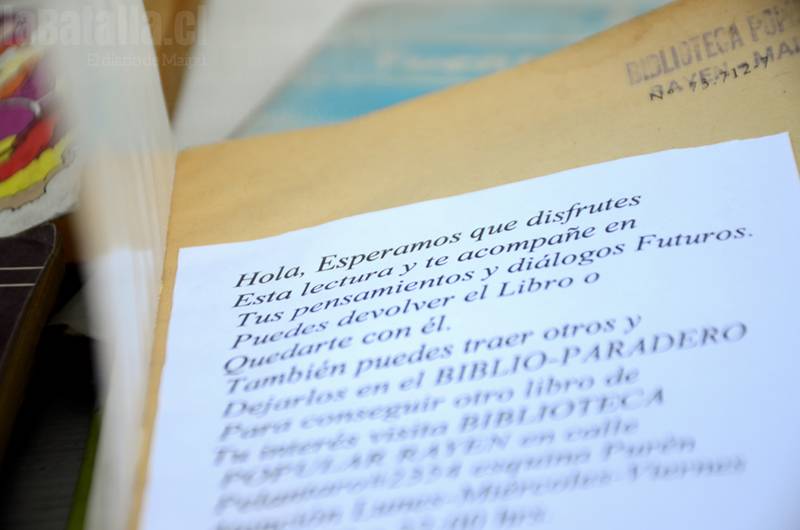 laBatalla.cl
El diario de Maipú
BIBLIOTECA POP
RAYEN - MAI
No 15.712-7
Hola, Esperamos que disfrutes
Esta lectura y te acompañe en
Tus pensamientos y diálogos Futuros.
Puedes devolver el Libro o
Quedarte con él.
También puedes traer otros y
Dejarlos en el BIBLIO-PARADERO
Para conseguir otro libro de
Tu interés visita BIBLIOTECA
POPULAR RAYEN en calle
esquina Purén
Lunes-Miércoles-Viernes
hrs.